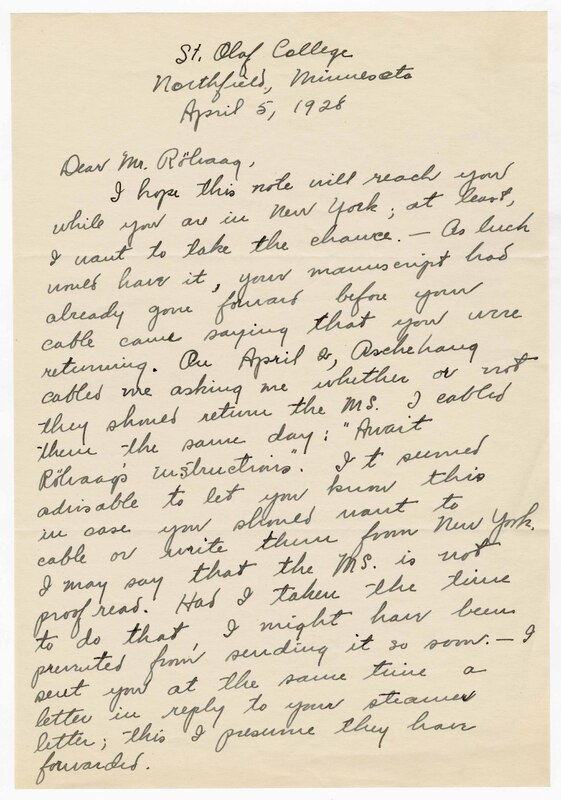 St. Olaf College
Northfield, Minnesota
April 5, 1928
Dear Mr. Rölvaag,
I hope this note will reach you
while you are in New York; at least,
I want to take the chance. — As luck
would have it, your manuscript had
already gone forward before your
cable came saying that you were
returning. On April 2, Aschehoug
cabled me asking me whether or not
they should return the MS. I cabled
them the same day: "Await
Rölvaag's instructions". It seemed
advisable to let you know this
in case you should want to
cable or write them from New York.
I may say that the MS. is not
proof read. Had I taken the time
to do that, I might have been
prevented from sending it so soon. — I
sent you at the same time a
letter in reply to your steamer
letter; this I presume they have
forwarded.